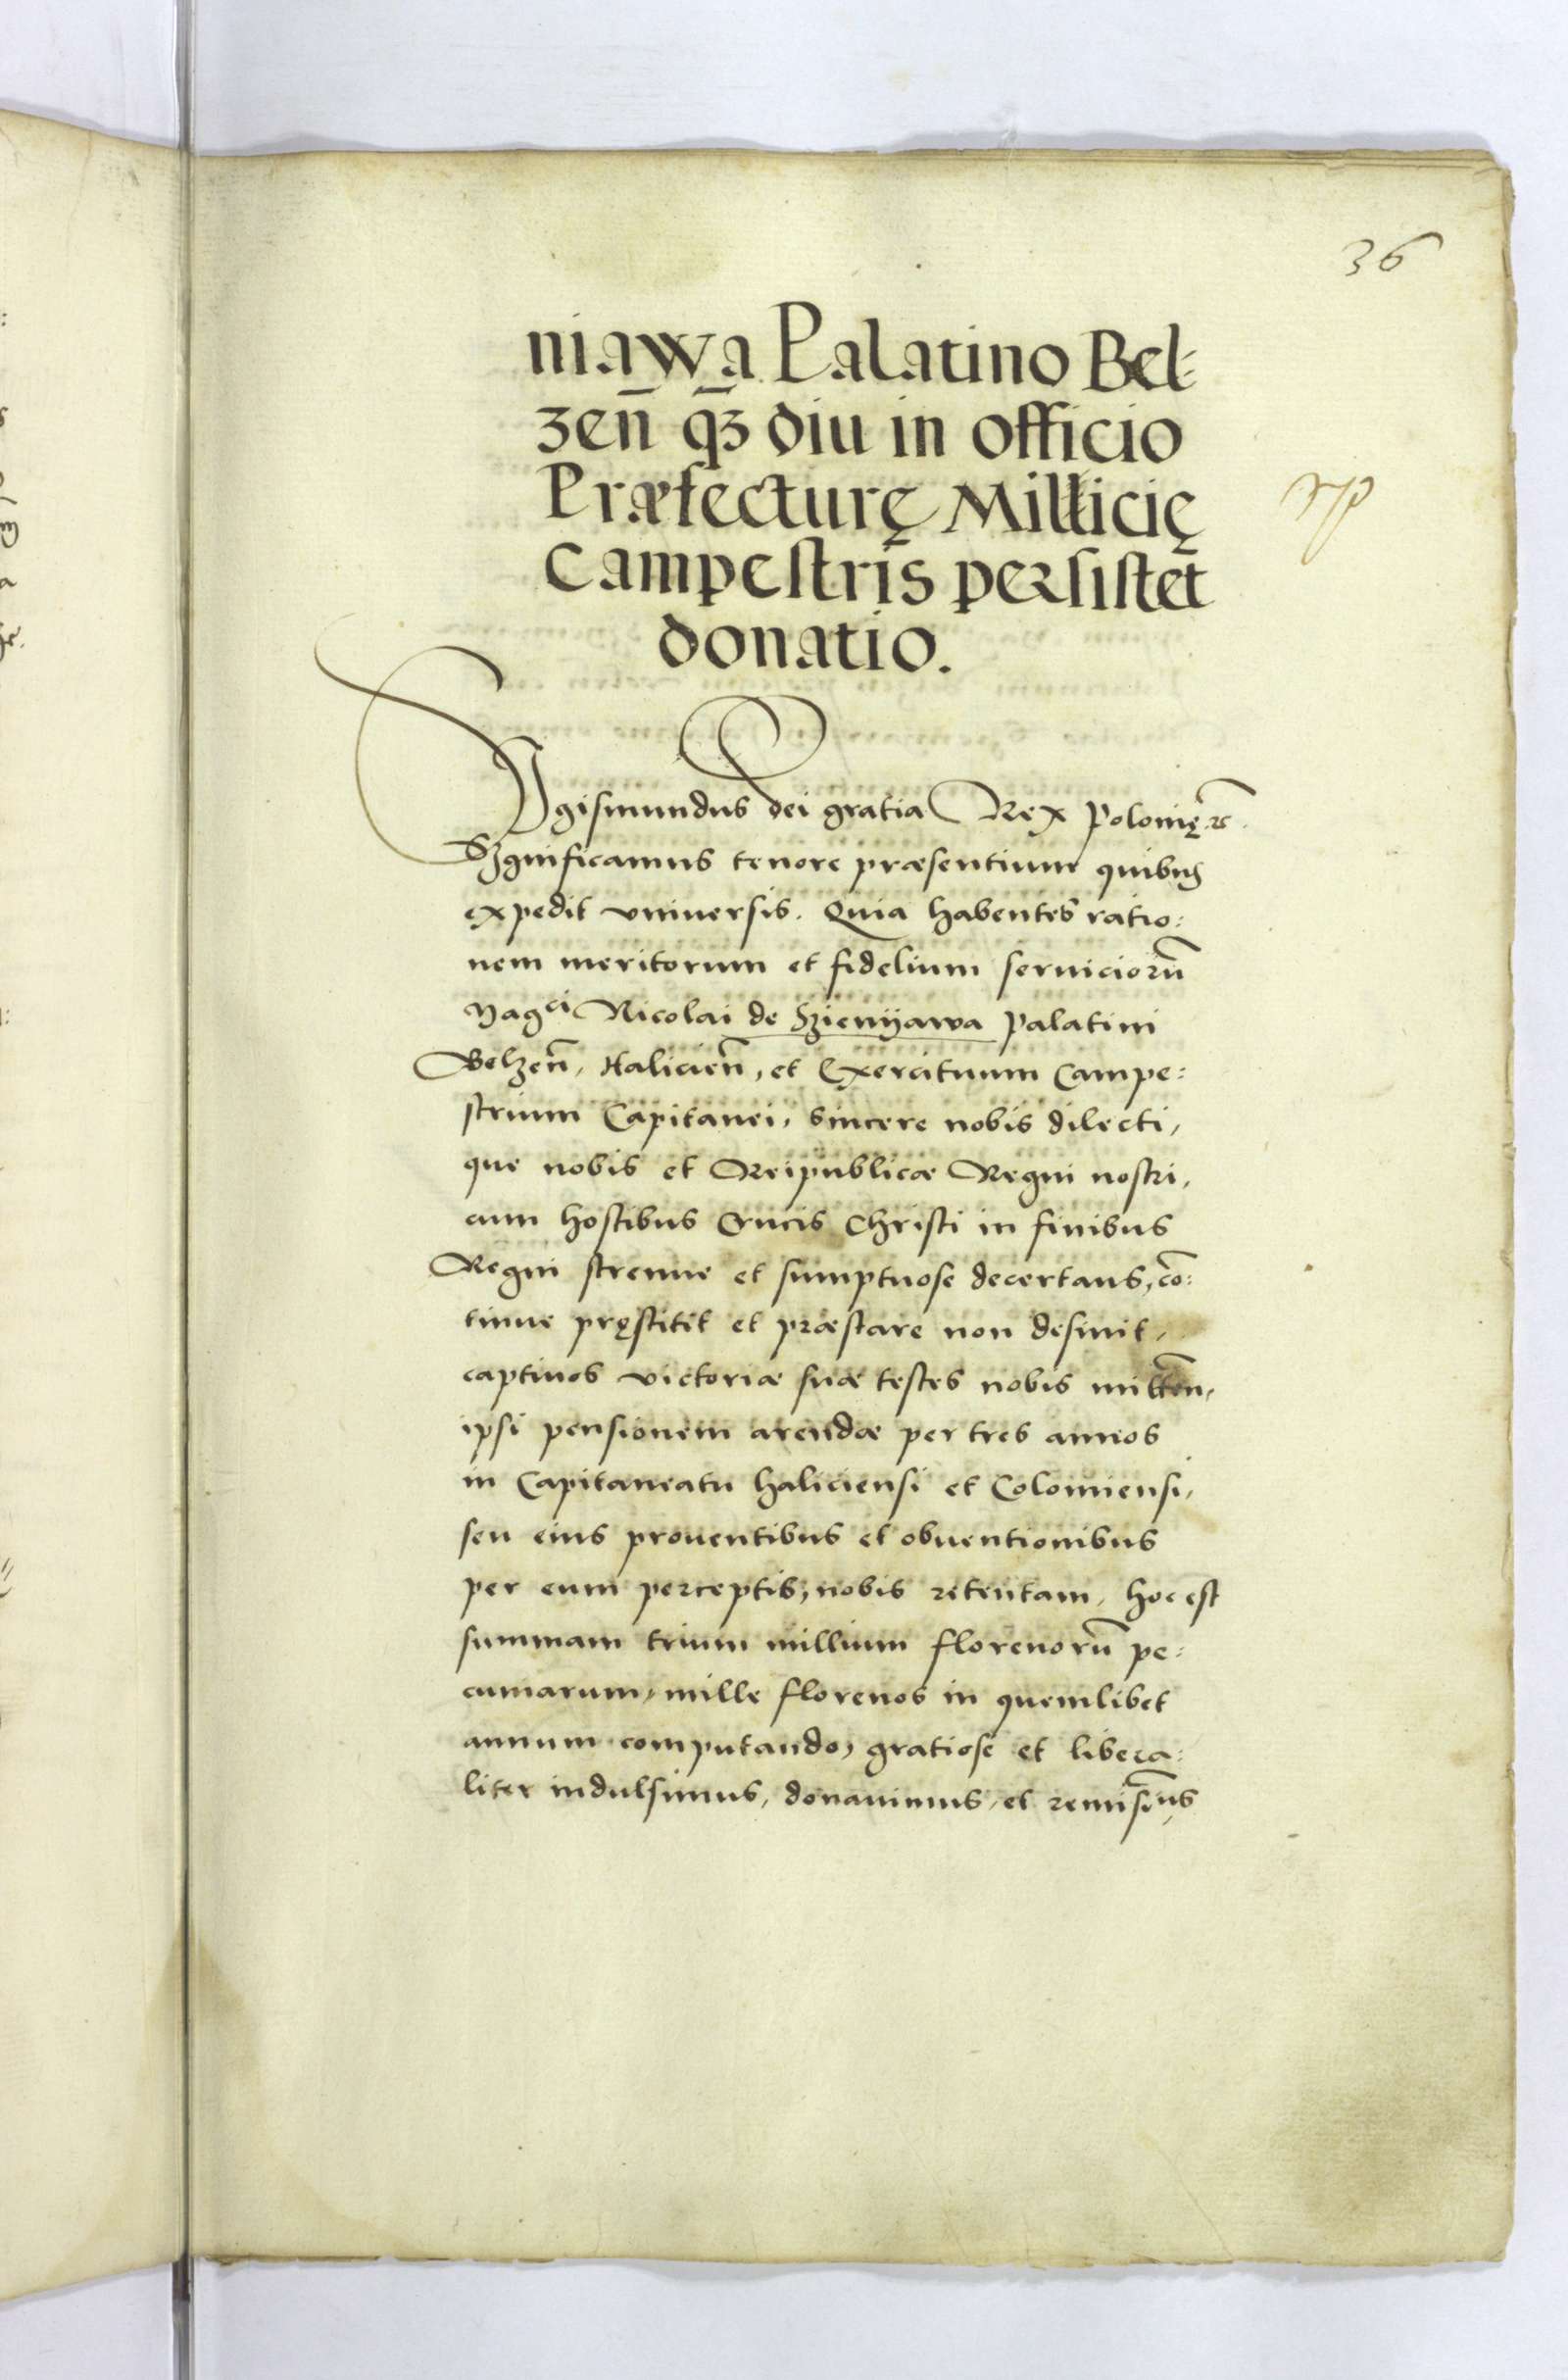 36
niawa Palatino Bel⸗
zen̄ q̄ꝫ diu in officio
Præfecturę Millicię
Campestris persistet
donatio.
Sigismundus dei gratia Rex Polonię ꝛc̄.
Significamus tenore præsentium quibus
expedit vniuersis. Quia habentes ratio:
nem meritorum et fidelium seruiciorū
Magci Nicolai de Szienyawa Palatini
Belzen̄, Halicien̄, et Exercituum Campe:
strium Capitanei, sincere nobis dilecti,
que nobis et Reipublicæ Regni nostri,
cum hostibus Crucis Christi in finibus
Regni strenue et sumptuose decertans, cō:
tinue pręstitit et præstare non desinit,
captiuos victoriæ suæ testes nobis mitten̄,
ipsi pensionem arendæ per tres annos
in Capitaneatu haliciensi et Colomiensi,
seu eius prouentibus et obuentionibus
per eum perceptis, nobis retentam, hoc est
summam trium millium florenorū pe:
cuniarum, mille florenos in quemlibet
annum computando, gratiose et libera:
liter indulsimus, donauimus, et remisim̄us,